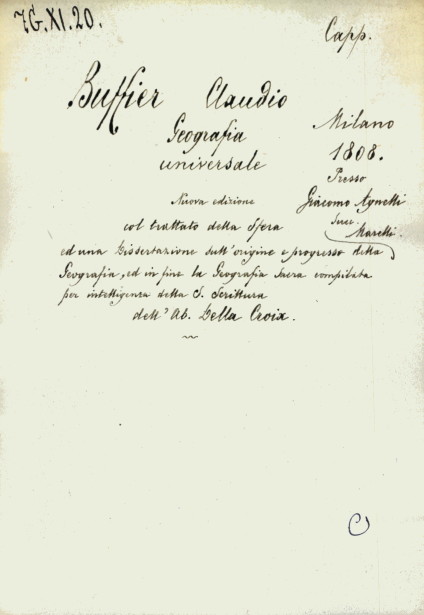 7G.XI.20.
Capp.
Buffier Claudio
Geografia
universale
Milano
1808.
Presso
Giacomo Agnelli
succ.
Marelli.
Nuova edizione
col trattato della Sfera
ed una Dissertazione sull'origine e progresso della
Geografia, ed in fine la Geografia Sacra compilata
per intelligenza della S. Scrittura
dell' Ab. Della Croix.
C